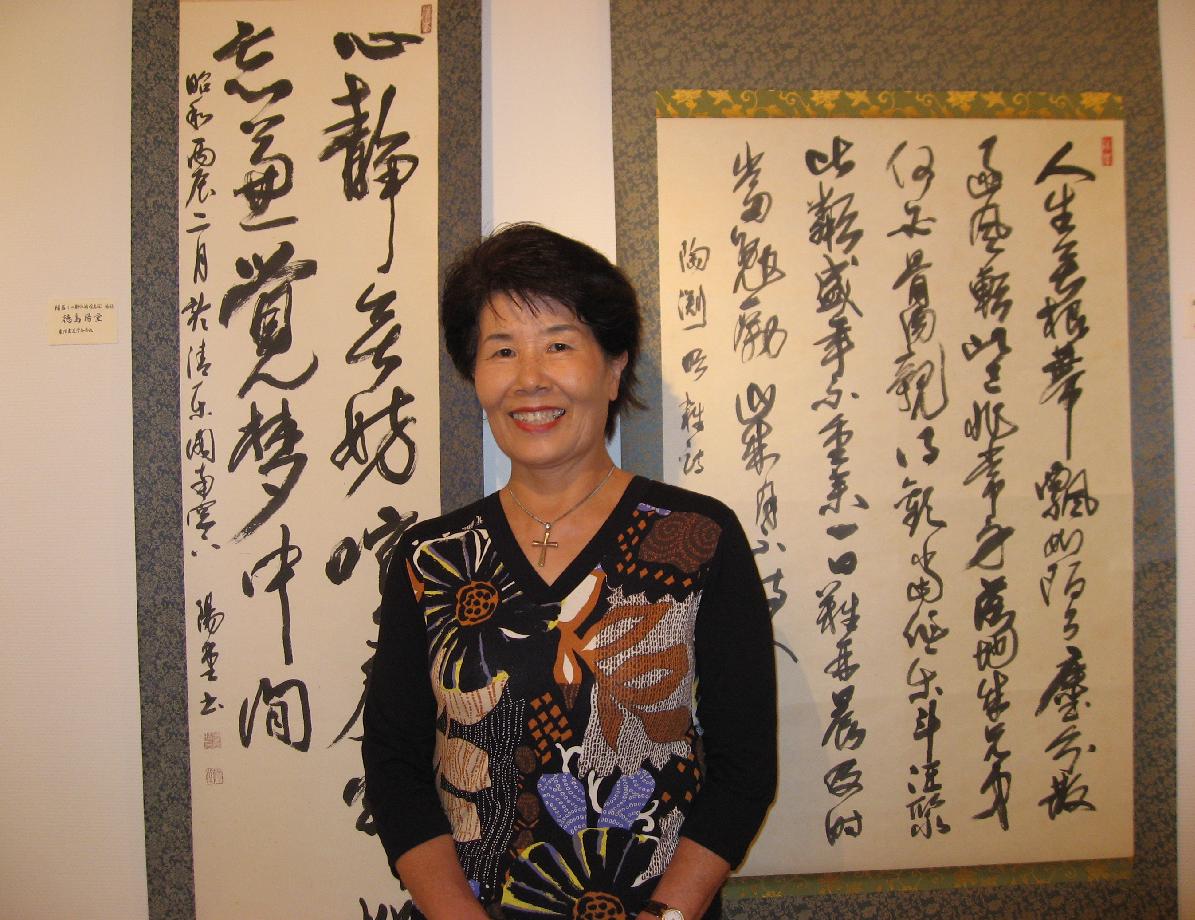 心静無妨喧處寂機
忘兼覚梦中閒
昭和丙辰二月於清楽園南窓下 陽堂書
徳島陽堂
人生無根蒂飄如陌上塵分散
逐風轉此已非常身落地成兄弟
何必骨肉親得歓当作楽斗酒聚
比鄰盛年不重来一日難再晨及時
當勉勵歳月不待人
陶淵明雜詩